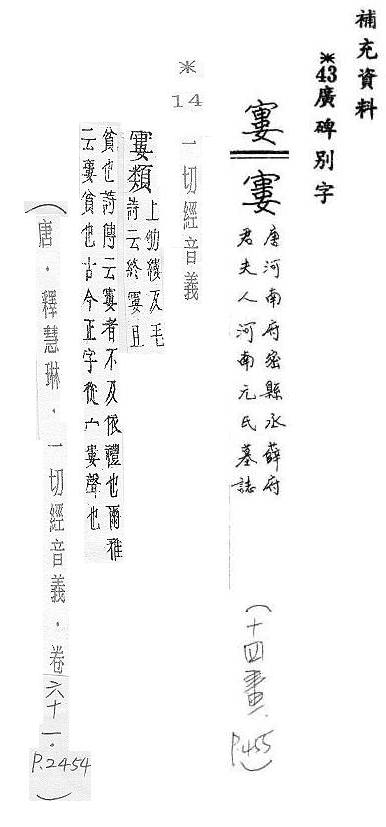 補充資料
※43廣碑別字
寠 寠 唐河南府密縣丞薛府
君夫人河南元氏墓誌
(十四畫. P.455)
※14 一切經音義
寠類 上劬縷反毛
詩云終寠且
貧也詩傳云寠者不及依禮也爾雅
云寠貧也古今正字從宀婁聲也
(唐.釋慧琳.一切經音義.卷六十一.P.2454)